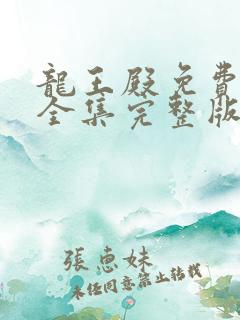 龍王殿免費
全集完整版
張惠妹
未經同意禁止转载